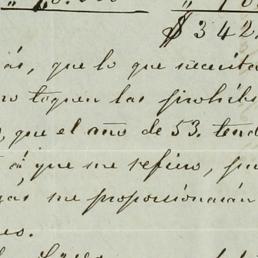 $ 342
ás, que lo que necesita
ro toquen las prohibi
, que el año de 53. tend
á que me refiero, pu
gas me proporcionarán